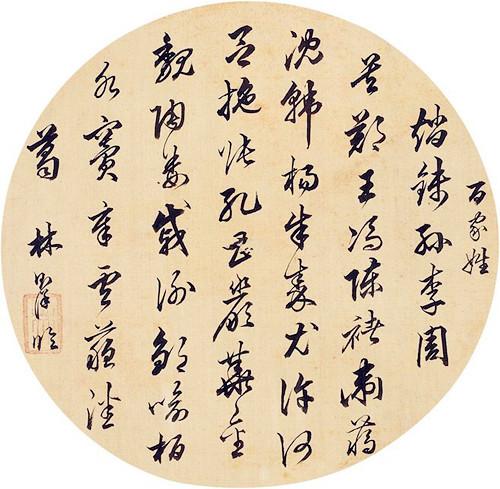 百家姓
趙錢孫李周
吳鄭王馮陳褚衛蔣
沈韓楊朱秦尤許何
呂施張孔曹嚴華金
魏陶姜戚謝鄒喻柏
水竇章雲蘇潘
葛
林